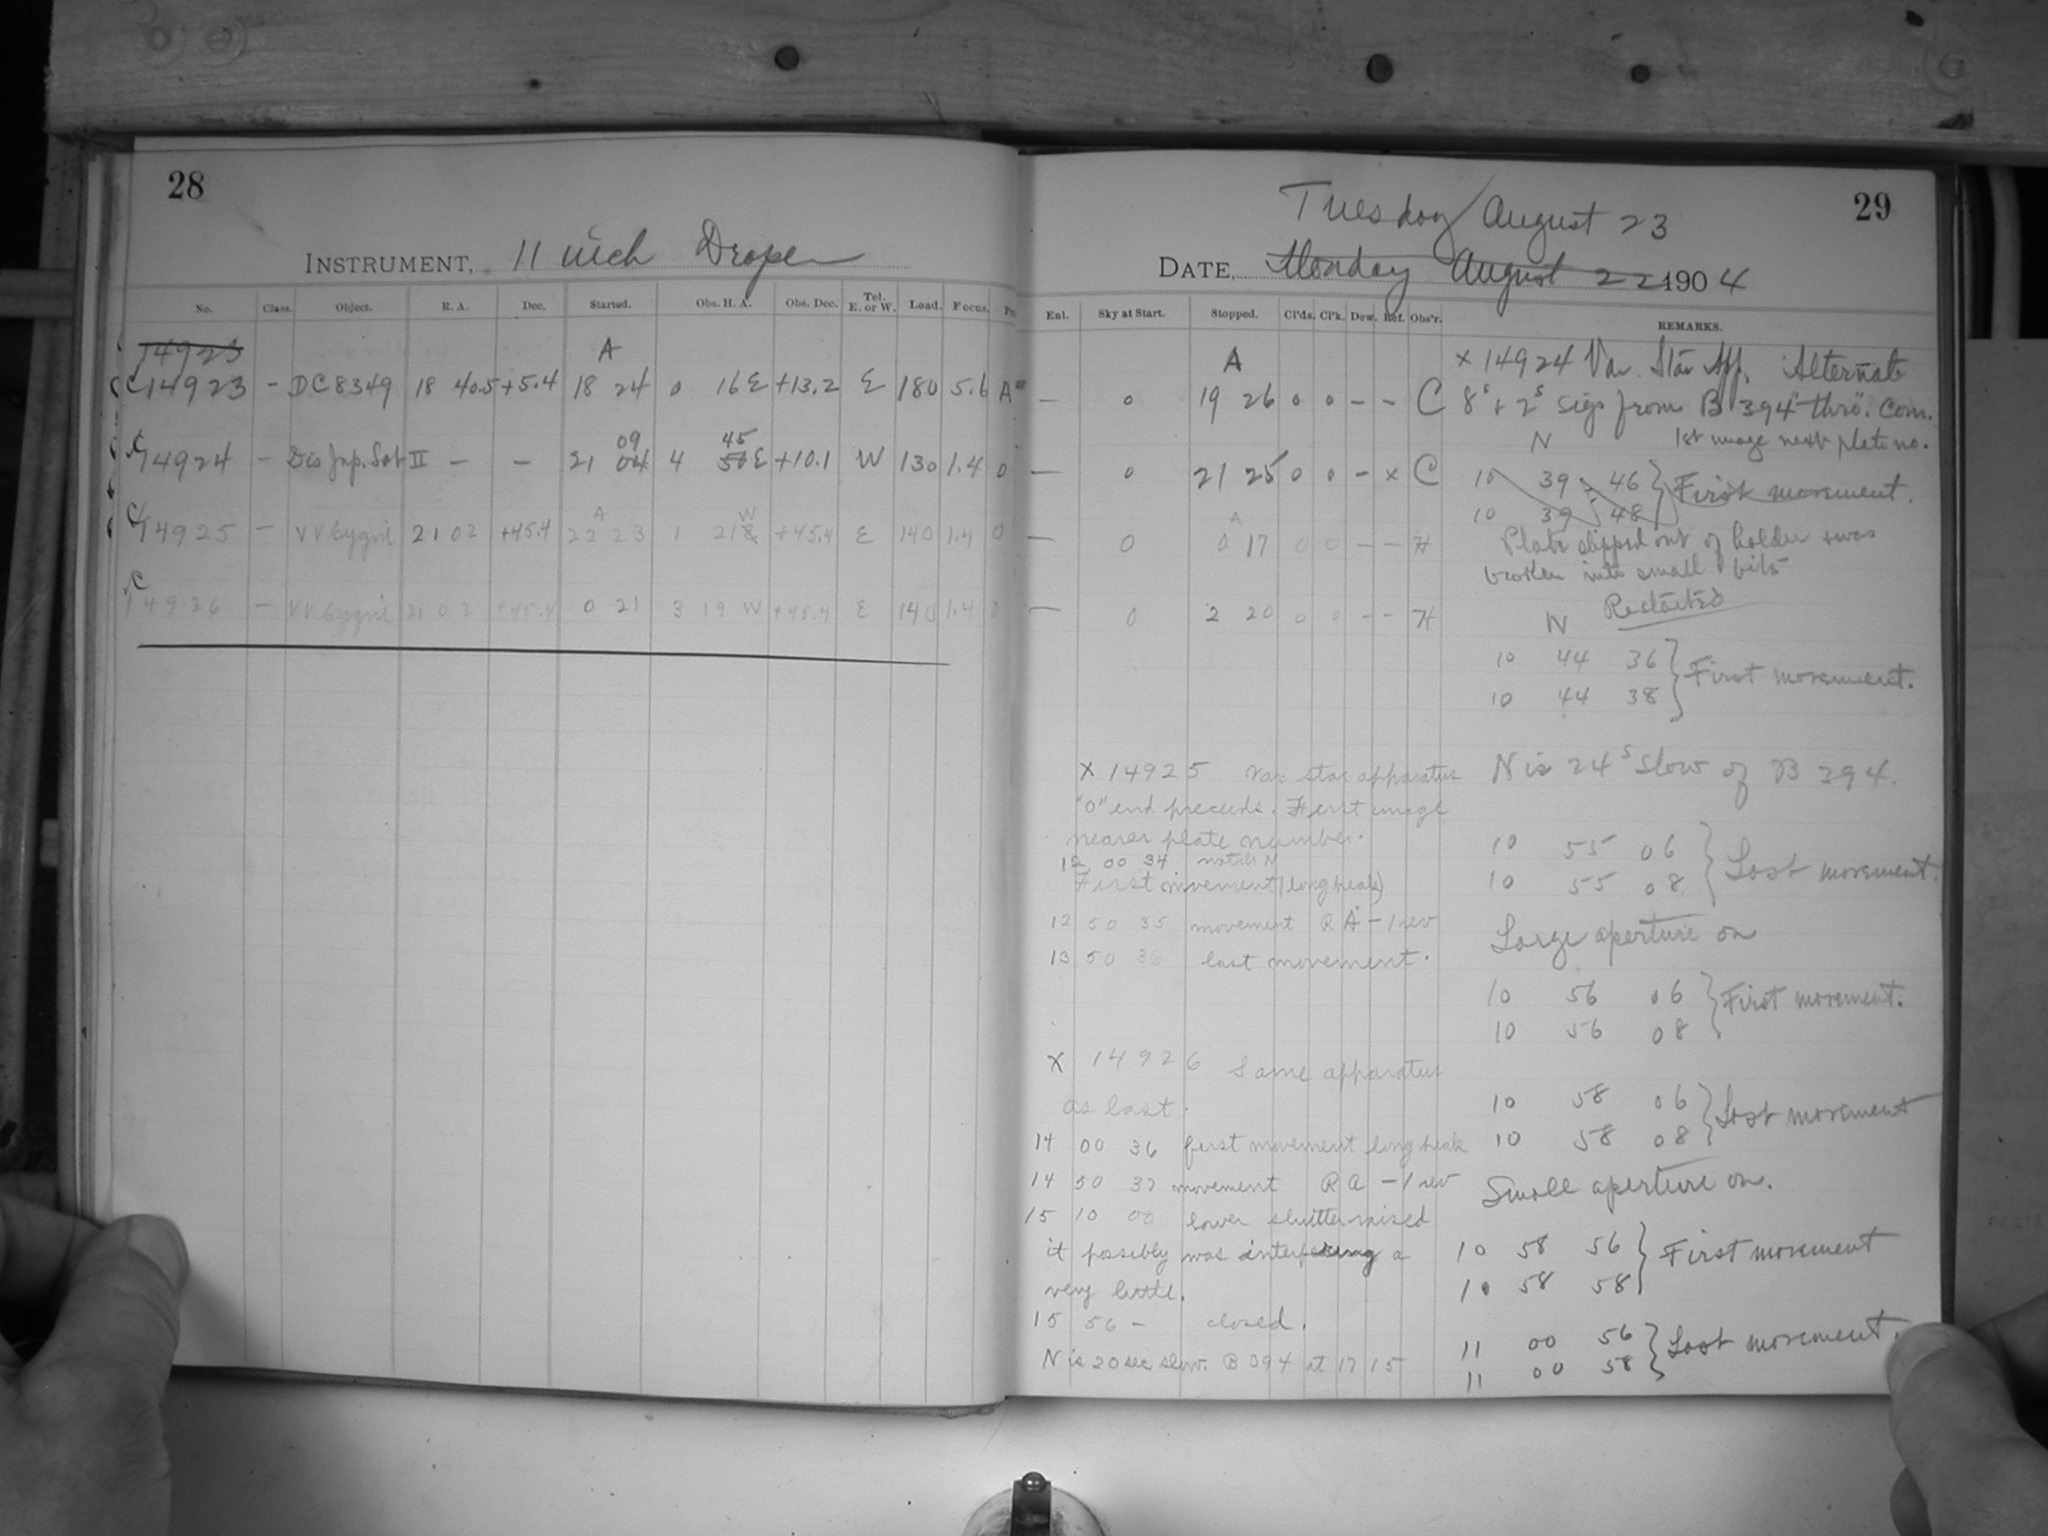 28
INSTRUMENT, 11 inch Draper
No. Class. Object. R. A. Dec. Started. Obs. H. A. Obs. Dec. Tel. E. or W. Load. Focus.
14923
A
C14923 - DC8349 18 40.5 +5.4 18 24 0 16 E +13.2 E 180 5.6 A
09 45
C14924 - Jup. Sat II - - 21 04 4 50 E +10.1 W 130 1.4 0
A W
C14925 - VV Cygni 21 02 +45.4 22 23 1 21 E +45.4 E 140 1.4 0
C14926 - VV Cygni 21 02 +45.4 0 21 3 19 W +45.4 E 140 1.4 0
29
Tuesday August 23
DATE, Monday August 22 1904
Enl. Sky at Start. Stopped. Cl'ds. Cl'k. Dew. Ref. Obs'r. REMARKS.
A
— 0 19 26 0 0 - - C
— 0 21 25 0 0 - x C
A
— 0 0 17 0 0 - - H
— 0 2 20 0 0 - - H
x 14924 Var. Star App. Alternate
8s + 2s sigs from B 394 thro'. Com.
N 1st image next plate no.
10 39 46
10 39 48 } First movement.
Plate slipped out of holder + was
broken into small bits
N Restarted
10 44 36
10 44 38 } First movement.
N is 24s slow of B 394.
10 55 06
10 55 08 } Last movement.
Large aperture on
10 56 06
10 56 08 } First movement.
10 58 06
10 58 08 } Last movement
Small aperture on.
10 58 56
10 58 58 } First movement
11 00 56
11 00 58 } Last movement.
x 14925 Var star apparatus
"0" end precedes. First image
nearer plate number.
12 00 34 watch N
First movement (long beak)
12 50 35 movement R A - 1 rev
13 50 36 last movement.
x 14926 Same apparatus
as last.
14 00 36 first movement long beak
14 50 37 movement R A - 1 rev
15 10 00 lower shutter raised
it possibly was interfering a
very little.
15 56 - closed.
N is 20 sec slow. B 394 at 17 15